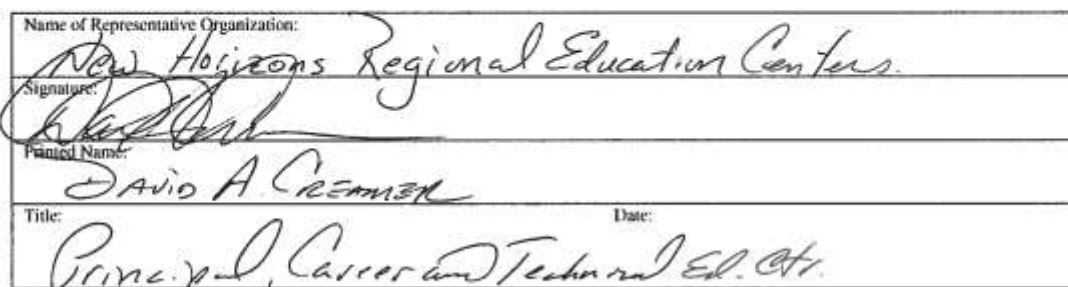 Name of Representative Organization:
New Horizons Regional Education Centers.
Signature:
Printed Name:
DAVID A. CREAMER
Title: Date:
Principal, Career and Technical Ed. Ctr.